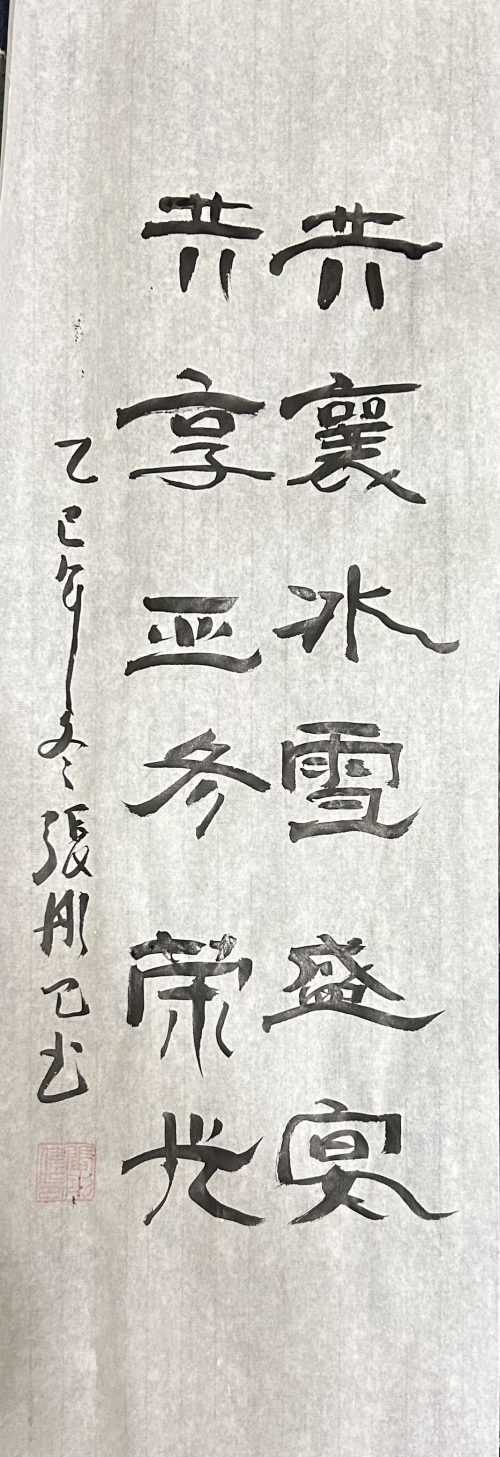 共襄冰雪盛宴
共享亚冬荣光
乙巳年冬張彤书